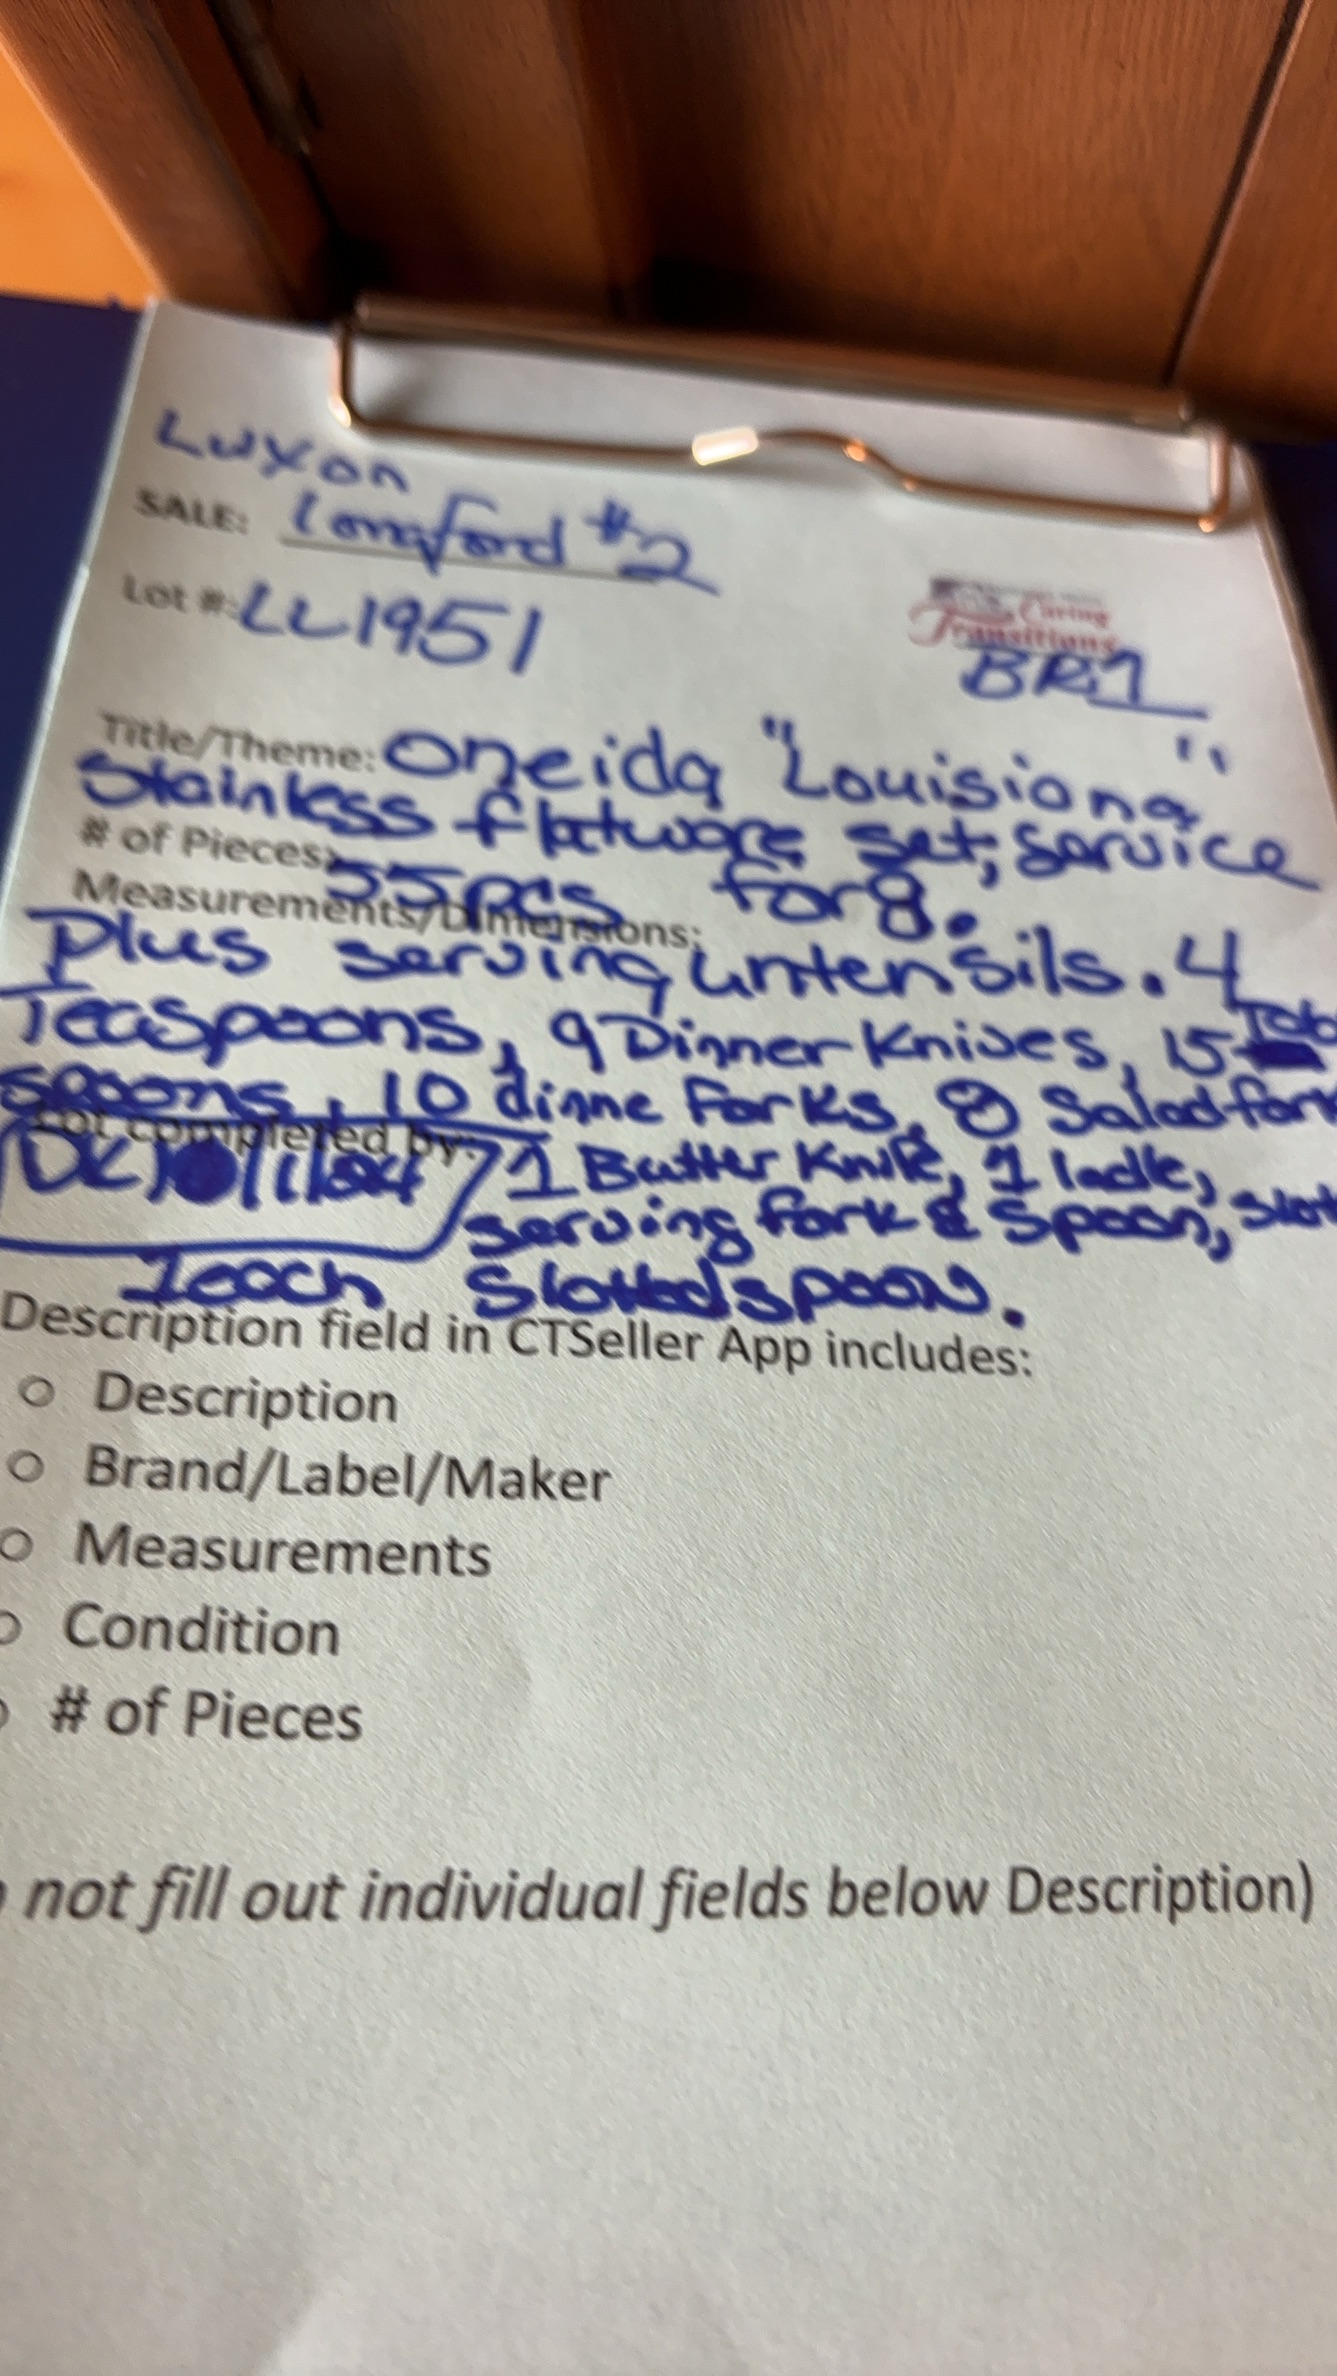 Luxon
SALE: Longford #2
Lot #: LL1951
Caring
Transitions
BR1
Title/Theme: Oneida "Louisiana"
Stainless flatware set, service
# of Pieces: 55pcs for 8.
Measurements/Dimensions:
Plus serving untensils. 4
Teaspoons, 9 Dinner Knives, 15 Tab
spoons, 10 dinne Forks, 8 Salad fork
Lot completed by:
1 Butter Knife, 1 ladle,
serving fork & Spoon, slot
1 each Slotted spoon.
Description field in CTSeller App includes:
○ Description
○ Brand/Label/Maker
○ Measurements
○ Condition
○ # of Pieces
not fill out individual fields below Description)